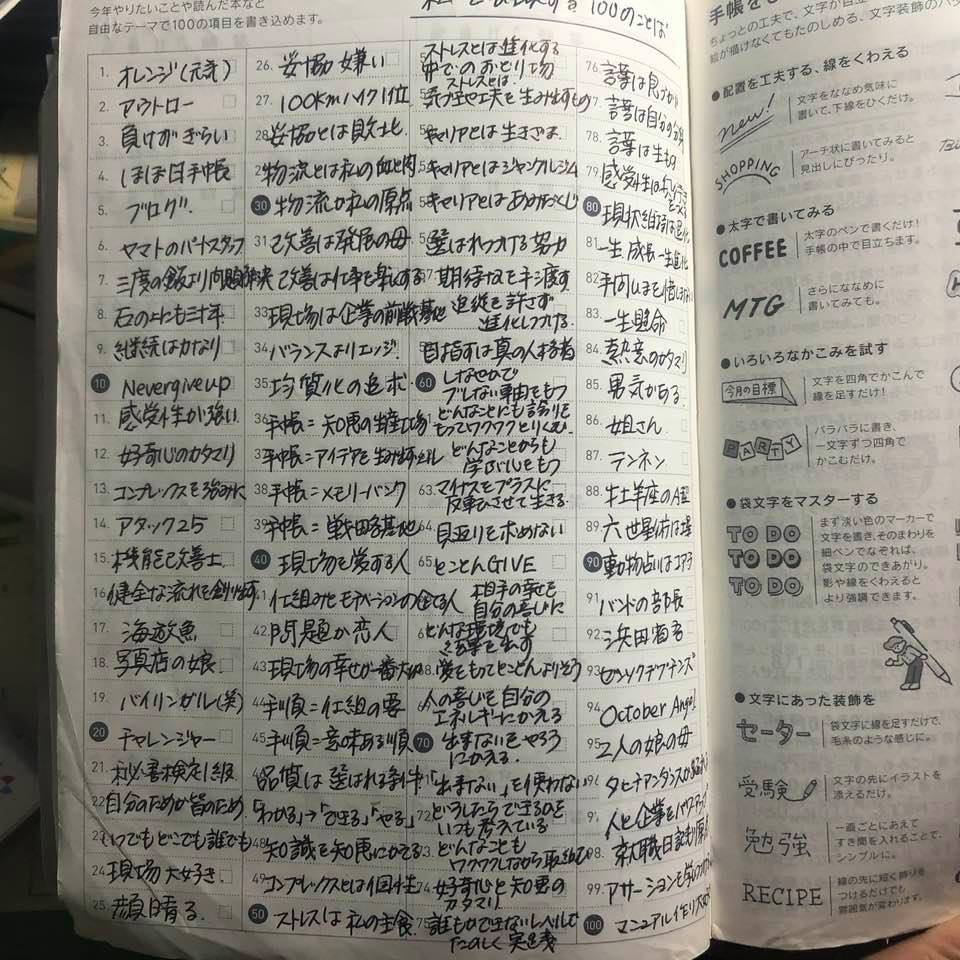 今年やりたいことや読んだ本など
自由なテーマで100の項目を書き込めます。
100のことば
1. オレンジ(元気)
2. アウトロー
3. 負けずぎらい
4. ほぼ日手帳
5. ブログ.
6. ヤマトのパートスタッフ
7. 三度の飯より問題解決
8. 石の上にも三十年
9. 継続は力なり
10 Never give up
11. 感受性が強い.
12. 好奇心のカタマリ
13. コンプレックスを強みに
14. アタック25
15. 機能改善士
16. 健全な流れを創り出す.
17. 海遊魚
18. 写真店の娘
19. バイリンガル(笑)
20 チャレンジャー
21. 秘書検定1級
22 自分のためが皆のため
23 いつでもどこでも誰でも
24. 現場大好き.
25. 顔晴る.
26. 妥協嫌い
27. 100kmハイク1位
28 妥協とは敗北.
29 物流とは私の血と肉
30 物流が私の原点
31. 改善は発展の母
32 改善は仕事を楽しくする
33. 現場は企業の前戦基地
34. バランスよりエッジ.
35. 均質化の追求
36 手帳=知恵の生産工場
37 手帳=アイデアを生み出す
38. 手帳=メモリーバンク
39. 手帳=戦略基地
40 現場を愛する人
41. 仕組みとモチベーションの
42. 問題が恋人
43. 現場の幸せが一番大切
44. 手順=仕組の要
45. 手順=意味ある順
46 品質は選ばれる条件
47 「わかる」→「できる」「やる」
48. 知識を知恵にかえる
49. コンプレックスとは個性
50 ストレスは私の主食.
ストレスとは進化する
中でのおどり場
ストレスとは、
気づきや工夫を生み出すもの
キャリアとは生きざま.
キャリアとはジャングルジム
キャリアとはあみだくじ
選ばれつづける努力
57. 期待以上を手渡す
追従を許さず
進化しつづける.
目指すは真の人格者
60 しなやかで
ブレない軸をもつ
どんなことにも誇りを
もってワクワクとりくむ.
どんなことからも
学ぶ心をもつ
63. マイナスをプラスに
反転させて生きる.
64. 見返りを求めない
65. とことんGIVE
相手の幸せを
自分の喜びに
どんな環境でも
結果を出す
68. 愛をもってとことんよりそう
人の喜びを自分の
エネルギーにかえる
70 出来ないをやろう
にかえる.
「出来ない」を使わない
72. どうしたらできるかを
いつも考えている
73. どんなことも
ワクワクしながら取組む
74. 好奇心と知恵の
カタマリ
75 誰もができないレベルで
たのしく実践
76. 言葉は良
77. 言葉は自分の分身
78. 言葉は生もの
79. 感受性は
80 現状維持は退化
81. 一生成長一生進化
82. 手間ひまを惜しまない
83. 一生懸命
84. 熱意のカタマリ
85. 男気がある.
86. 姐さん.
87. テンネン
88. 牡羊座のA型
89. 六世星術は土星
90 動物占いはコアラ
91. バンドの部長
92. 浜田省吾
93. センソクデプテンズ
94. October Angel
95. 2人の娘の母
96.
97. 人と企業をパワーアップ
98. 就職日誌
99. アサーション
100 マニュアル作り
手帳を
ちょっとの工夫で、文字が目立
絵が描けなくてもたのしめる、文字装飾のバ
●配置を工夫する、線をくわえる
new!
文字をななめ気味に
書いて、下線をひくだけ。
SHOPPING
アーチ状に書いてみると
見出しにぴったり。
●太字で書いてみる
COFFEE
太字のペンで書くだけ!
手帳の中で目立ちます。
MTG
さらにななめに
書いてみても。
●いろいろなかこみを試す
今月の目標
文字を四角でかこんで
線を足すだけ!
PARTY
バラバラに書き、
一文字ずつ四角で
かこむだけ。
●袋文字をマスターする
TO DO
TO DO
TO DO
まず淡い色のマーカーで
文字を書き、そのまわりを
細ペンでなぞれば、
袋文字のできあがり。
影や線をくわえると
より強調できます。
●文字にあった装飾を
セーター
袋文字に線を足すだけで、
毛糸のような感じに。
受験
文字の先にイラストを
添えるだけ。
勉強
一画ごとにあえて
すき間を入れることで、
シンプルに。
RECIPE
線の先に短く飾りを
つけるだけでも
雰囲気が変わります。